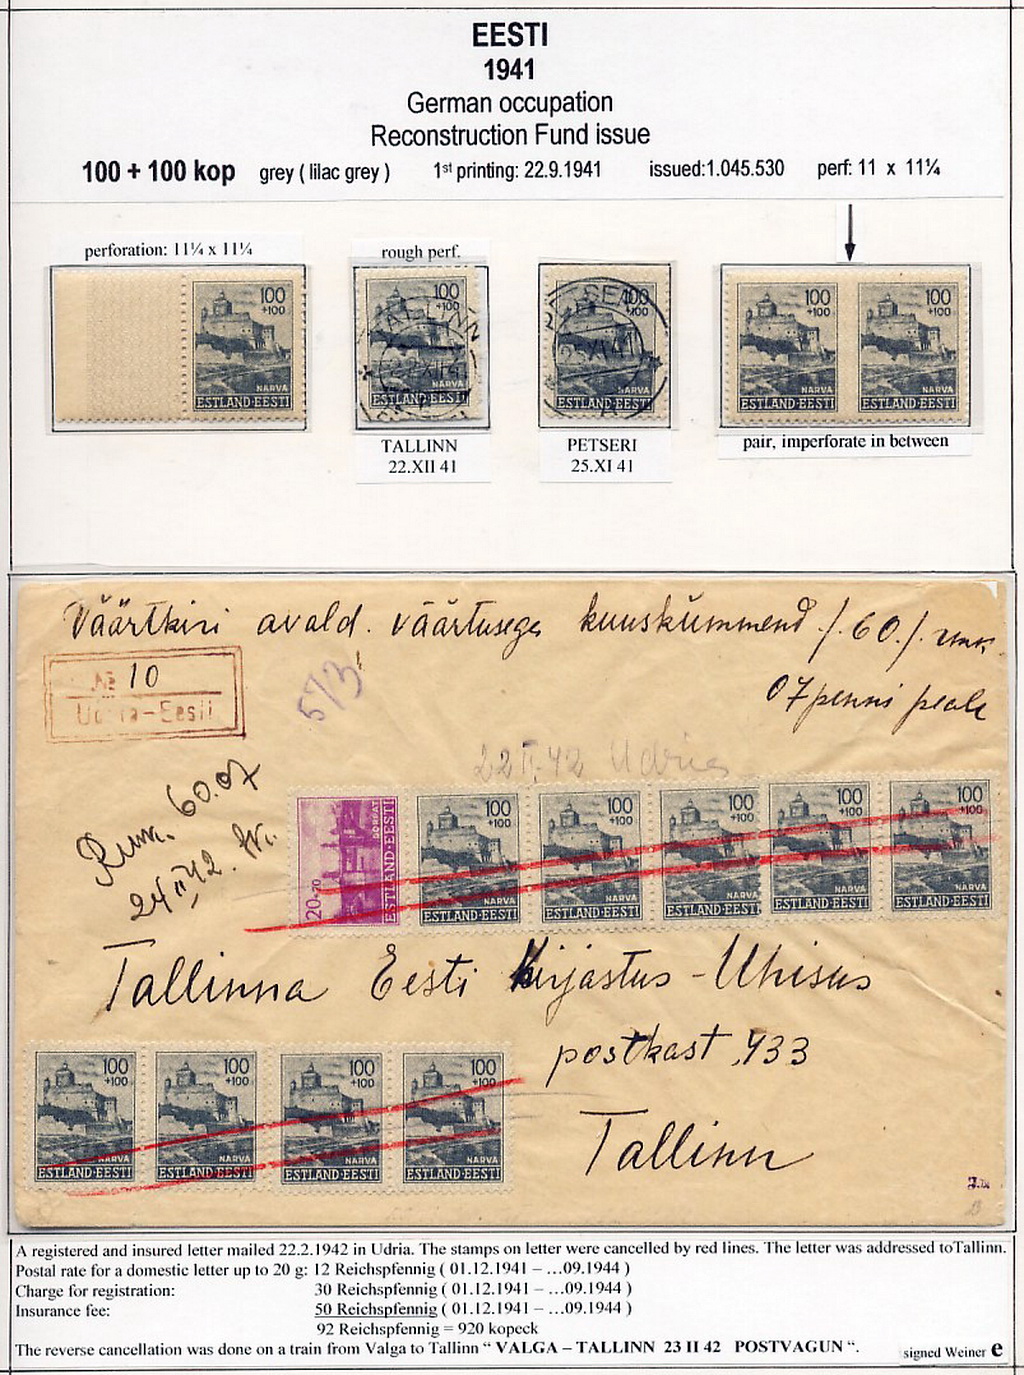 EESTI
1941
German occupation
Reconstruction Fund issue
100 + 100 kop grey ( lilac grey ) 1st printing: 22.9.1941 issued:1.045.530 perf: 11 x 11¼
perforation: 11¼ x 11¼
rough perf.
100
+100
NARVA
ESTLAND·EESTI
100
+100
NARVA
ESTLAND·EESTI
100
+100
NARVA
ESTLAND·EESTI
100
+100
NARVA
ESTLAND·EESTI
100
+100
NARVA
ESTLAND·EESTI
TALLINN
22.XII 41
PETSERI
25.XI 41
pair, imperforate in between
Väärtkiri avald. väärtusega kuuskümmend /.60./ rmk.
07 penni peale
№ 10
Udria-Eesti
573
22 II. 42 Udrias
Rmk. 60.07
24 II 42.
20+20
DORPAT
ESTLAND·EESTI
100
+100
NARVA
ESTLAND·EESTI
100
+100
NARVA
ESTLAND·EESTI
100
+100
NARVA
ESTLAND·EESTI
100
+100
NARVA
ESTLAND·EESTI
100
+100
NARVA
ESTLAND·EESTI
Tallinna Eesti Kirjastus-Ühisus
postkast 433
Tallinn
100
+100
NARVA
ESTLAND·EESTI
100
+100
NARVA
ESTLAND·EESTI
100
+100
NARVA
ESTLAND·EESTI
100
+100
NARVA
ESTLAND·EESTI
A registered and insured letter mailed 22.2.1942 in Udria. The stamps on letter were cancelled by red lines. The letter was addressed toTallinn.
Postal rate for a domestic letter up to 20 g: 12 Reichspfennig ( 01.12.1941 – …09.1944 )
Charge for registration: 30 Reichspfennig ( 01.12.1941 – …09.1944 )
Insurance fee: 50 Reichspfennig ( 01.12.1941 – …09.1944 )
92 Reichspfennig = 920 kopeck
The reverse cancellation was done on a train from Valga to Tallinn “ VALGA – TALLINN 23 II 42 POSTVAGUN “.
signed Weiner e